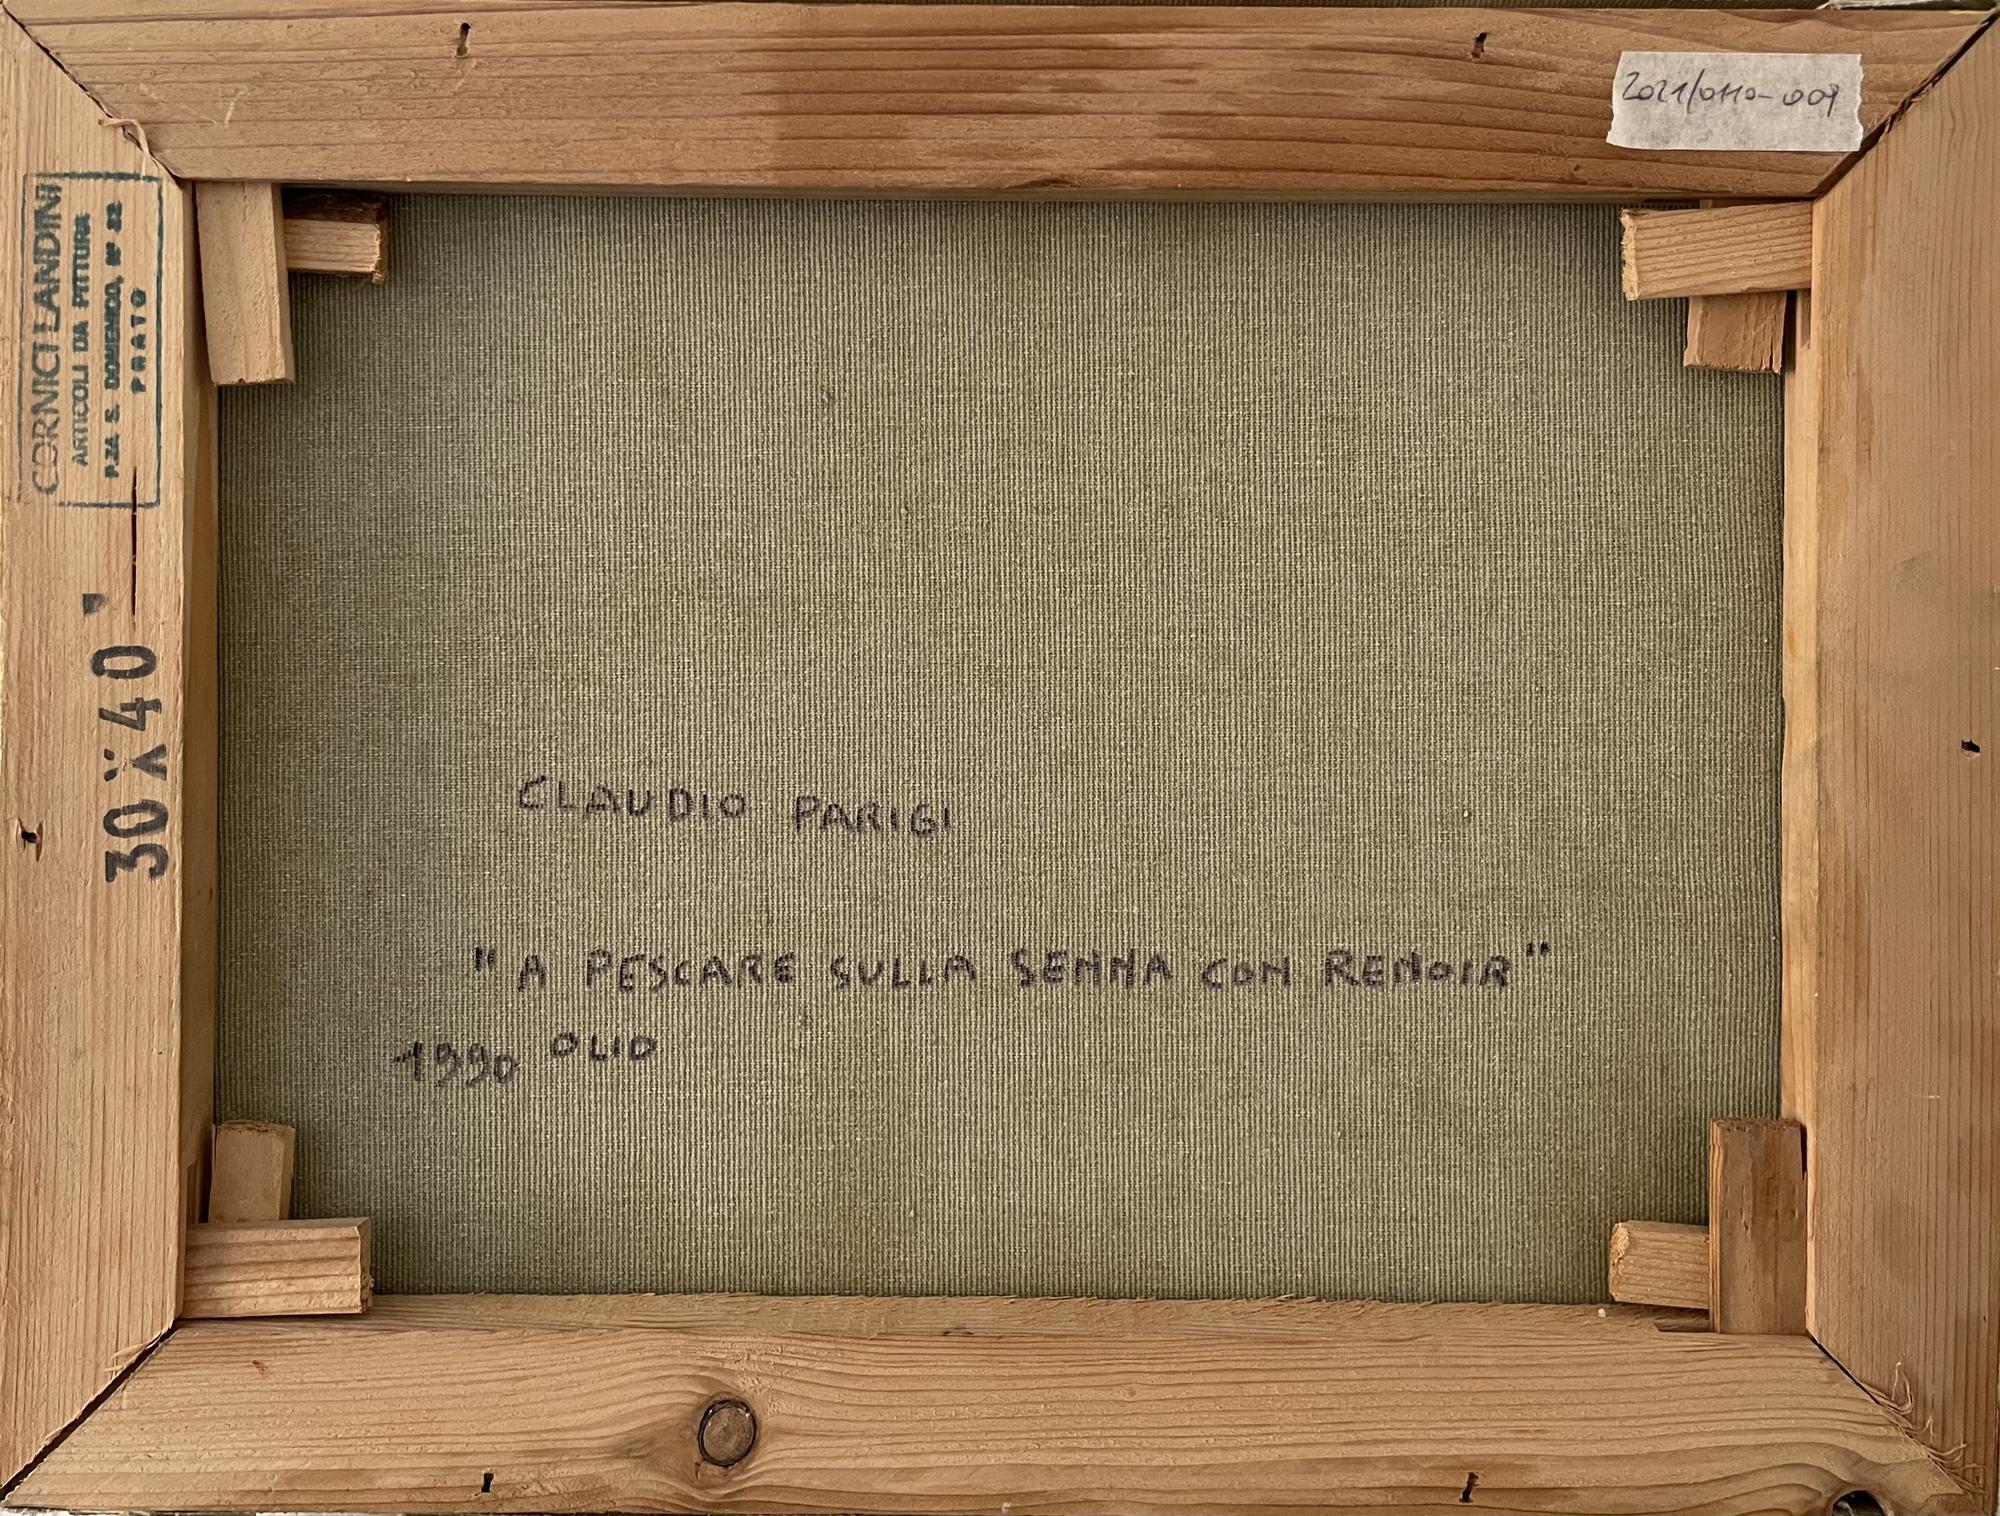 2021/0110-009
CORNICI LANDINI
ARTICOLI DA PITTURA
P.ZA S. DOMENICO, N° 22
PRATO
30X40
CLAUDIO PARIGI
"A PESCARE SULLA SENNA CON RENOIR"
1990 OLIO